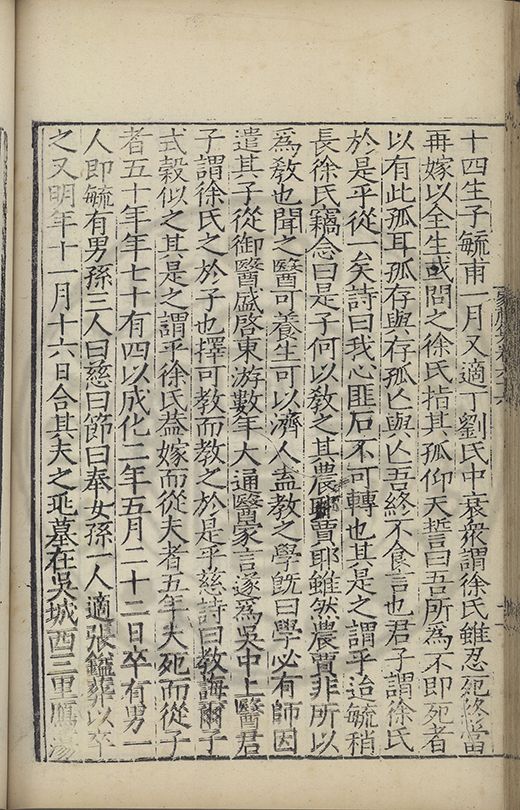 十四生子毓甫一月又適丁劉氏中衰衆謂徐氏雖忍死終當
再嫁以全生或問之徐氏指其孤仰天誓曰吾所為不即死者
以有此孤耳孤存與存孤亾與亾吾終不食言也君子謂徐氏
於是乎從一矣詩曰我心匪石不可轉也其是之謂乎迨毓稍
長徐氏竊念曰是子何以敎之其農耶賈耶雖然農賈非所以
為敎也聞之醫可養生可以濟人盍教之學旣曰學必有師因
遣其子從御醫盛啓東游數年大通醫家言遂為吳中上醫君
子謂徐氏之於子也擇可教而教之於是乎慈詩曰教誨爾子
式穀似之其是之謂乎徐氏葢嫁而從夫者五年夫死而從子
者五十年年七十有四以成化二年五月二十二日卒有男一
人即毓有男孫三人曰慈曰節曰奉女孫一人適張鎰葬以卒
之又明年十一月十六日合其夫之兆墓在吳城西三里鴈蕩